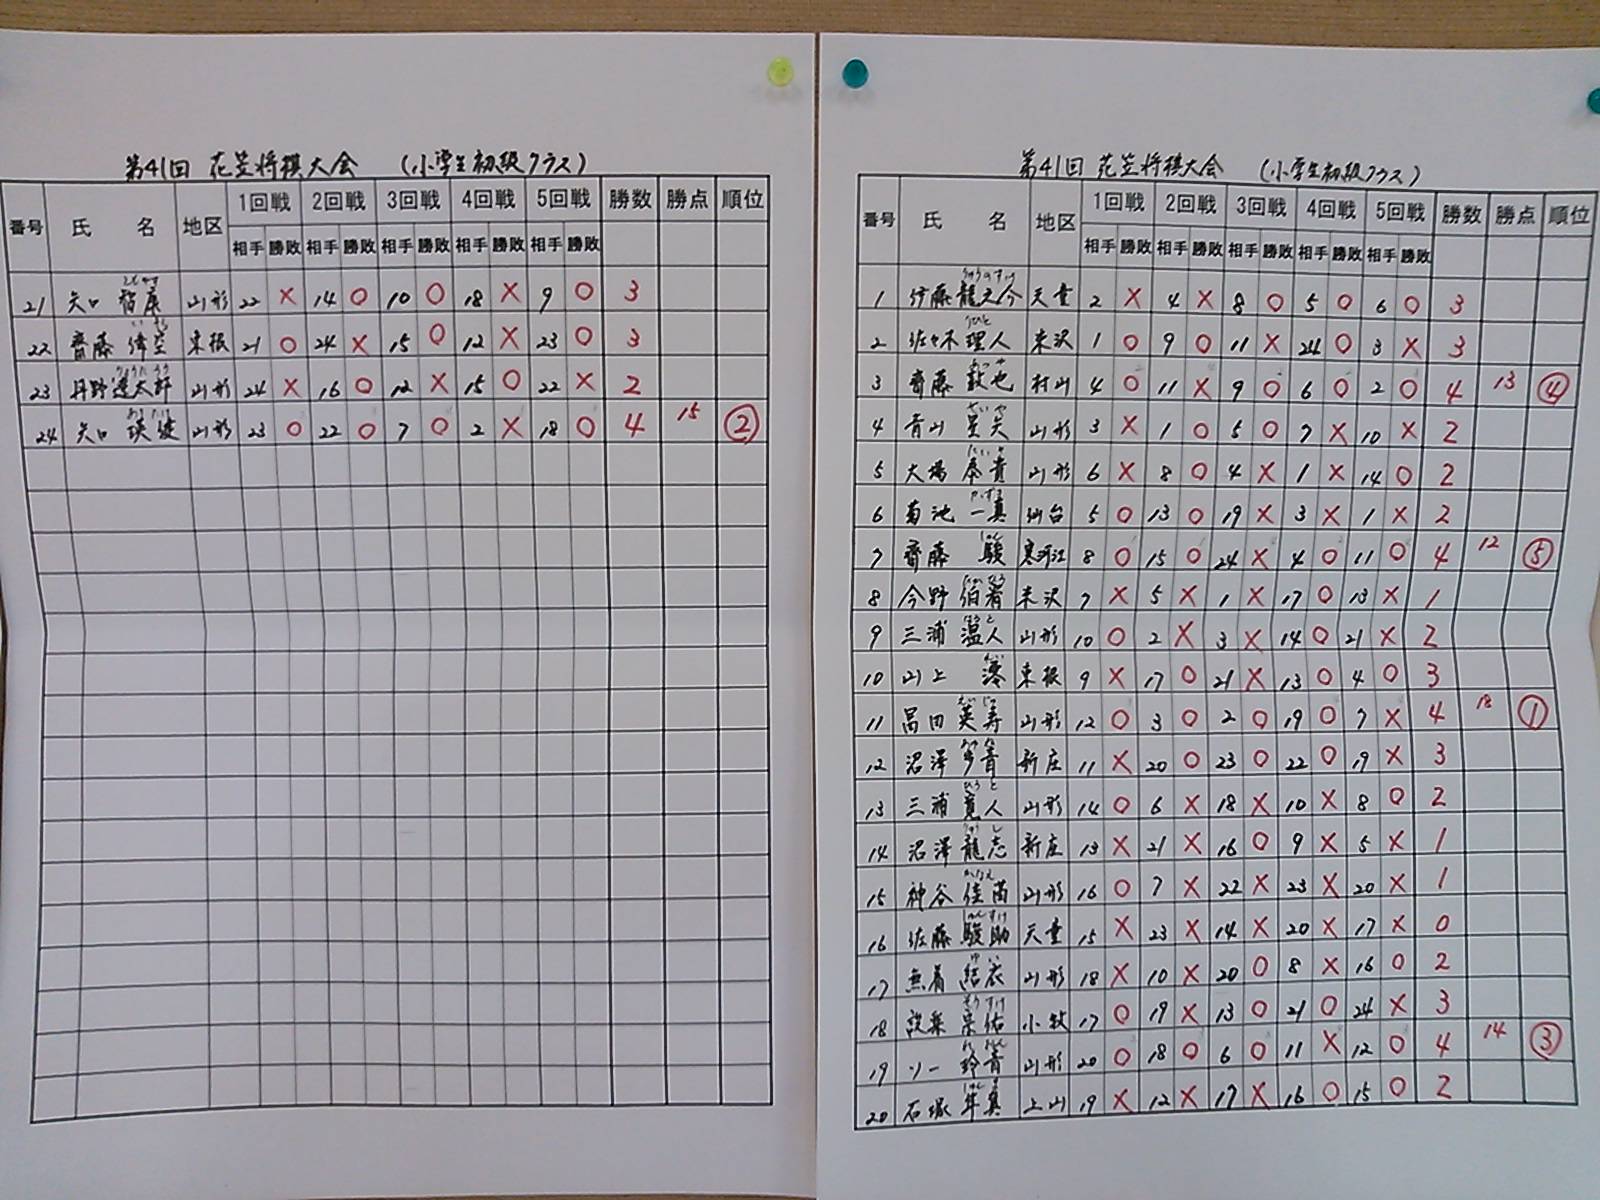 第41回 花笠将棋大会 (小学生初級クラス)
番号 氏 名 地区 1回戦 2回戦 3回戦 4回戦 5回戦 勝数 勝点 順位
相手 勝敗 相手 勝敗 相手 勝敗 相手 勝敗 相手 勝敗
21 矢口 山形 22 × 14 ○ 10 ○ 18 × 9 ○ 3
22 齋藤 偉空 東根 21 ○ 24 × 15 ○ 12 × 23 ○ 3
りょうたろう
23 丹野遼太郎 山形 24 × 16 ○ 12 × 15 ○ 22 × 2
24 矢口 瑛健 山形 23 ○ 22 ○ 7 ○ 2 × 18 ○ 4 15 ②
第41回 花笠将棋大会 (小学生初級クラス)
番号 氏 名 地区 1回戦 2回戦 3回戦 4回戦 5回戦 勝数 勝点 順位
相手 勝敗 相手 勝敗 相手 勝敗 相手 勝敗 相手 勝敗
りゅうのすけ
1 伊藤龍之介 天童 2 × 4 × 8 ○ 5 ○ 6 ○ 3
りひと
2 佐々木理人 米沢 1 ○ 9 ○ 11 × 24 ○ 3 × 3
3 齋藤 也 村山 4 ○ 11 × 9 ○ 6 ○ 2 ○ 4 13 ④
せいや
4 青山 星矢 山形 3 × 1 ○ 5 ○ 7 × 10 × 2
たいき
5 大場 泰貴 山形 6 × 8 ○ 4 × 1 × 14 ○ 2
かずま
6 菊池 一真 仙台 5 ○ 13 ○ 19 × 3 × 1 × 2
しゅん
7 齋藤 駿 寒河江 8 ○ 15 ○ 24 × 4 ○ 11 ○ 4 12 ⑤
8 今野 伯 米沢 7 × 5 × 1 × 17 ○ 13 × 1
はると
9 三浦 温人 山形 10 ○ 2 × 3 × 14 ○ 21 × 2
10 川上 澪 東根 9 × 17 ○ 21 × 13 ○ 4 ○ 3
えいじゅ
11 冨田 英寿 山形 12 ○ 3 ○ 2 ○ 19 ○ 7 × 4 18 ①
12 沼澤 青 新庄 11 × 20 ○ 23 ○ 22 ○ 19 × 3
ひろと
13 三浦 寛人 山形 14 ○ 6 × 18 × 10 × 8 ○ 2
りゅうし
14 沼澤 龍志 新庄 13 × 21 × 16 ○ 9 × 5 × 1
かなえ
15 神谷 佳苗 山形 16 ○ 7 × 22 × 23 × 20 × 1
しゅんすけ
16 佐藤 駿助 天童 15 × 23 × 14 × 20 × 17 × 0
ゆい
17 無着 結衣 山形 18 × 10 × 20 ○ 8 × 16 ○ 2
そうすけ
18 設楽 宗佑 小牧 17 ○ 19 × 13 ○ 21 ○ 24 × 3
19 ソー 玲音 山形 20 ○ 18 ○ 6 ○ 11 × 12 ○ 4 14 ③
20 石塚 隼真 上山 19 × 12 × 17 × 16 ○ 15 ○ 2